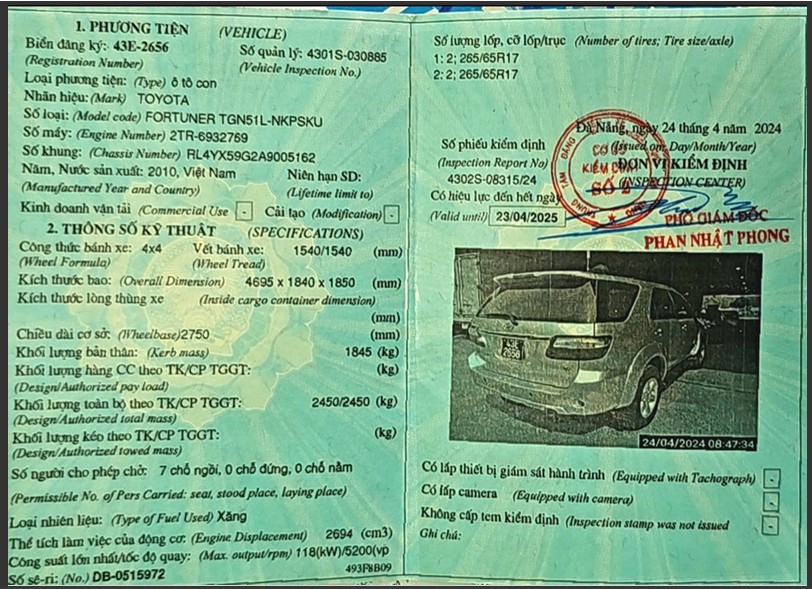 1. PHƯƠNG TIỆN (VEHICLE)
Biển đăng ký: 43E-2656 Số quản lý: 4301S-030885
(Registration Number) (Vehicle Inspection No.)
Loại phương tiện: (Type) ô tô con
Nhãn hiệu: (Mark) TOYOTA
Số loại: (Model code) FORTUNER TGN51L-NKPSKU
Số máy: (Engine Number) 2TR-6932769
Số khung: (Chassis Number) RL4YX59G2A9005162
Năm, Nước sản xuất: 2010, Việt Nam Niên hạn SD:
(Manufactured Year and Country) (Lifetime limit to)
Kinh doanh vận tải (Commercial Use) - Cải tạo (Modification) -
2. THÔNG SỐ KỸ THUẬT (SPECIFICATIONS)
Công thức bánh xe: 4x4 Vết bánh xe: 1540/1540 (mm)
(Wheel Formula) (Wheel Tread)
Kích thước bao: (Overall Dimension) 4695 x 1840 x 1850 (mm)
Kích thước lòng thùng xe (Inside cargo container dimension)
(mm)
Chiều dài cơ sở: (Wheelbase) 2750 (mm)
Khối lượng bản thân: (Kerb mass) 1845 (kg)
Khối lượng hàng CC theo TK/CP TGGT: (kg)
(Design/Authorized pay load)
Khối lượng toàn bộ theo TK/CP TGGT: 2450/2450 (kg)
(Design/Authorized total mass)
Khối lượng kéo theo TK/CP TGGT: (kg)
(Design/Authorized towed mass)
Số người cho phép chở: 7 chỗ ngồi, 0 chỗ đứng, 0 chỗ nằm
(Permissible No. of Pers Carried: seat, stood place, laying place)
Loại nhiên liệu: (Type of Fuel Used) Xăng
Thể tích làm việc của động cơ: (Engine Displacement) 2694 (cm3)
Công suất lớn nhất/tốc độ quay: (Max. output/rpm) 118(kW)/5200(vp
493F8B09
Số sê-ri: (No.) DB-0515972
Số lượng lốp, cỡ lốp/trục (Number of tires; Tire size/axle)
1: 2; 265/65R17
2: 2; 265/65R17
Đà Nẵng, ngày 24 tháng 4 năm 2024
(Issued on: Day/Month/Year)
Số phiếu kiểm định
(Inspection Report No) ĐƠN VỊ KIỂM ĐỊNH
4302S-08315/24 (INSPECTION CENTER)
Có hiệu lực đến hết ngày
(Valid until) 23/04/2025
PHÓ GIÁM ĐỐC
PHAN NHẬT PHONG
43E
2656
24/04/2024 08:47:34
Có lắp thiết bị giám sát hành trình (Equipped with Tachograph) -
Có lắp camera (Equipped with camera) -
Không cấp tem kiểm định (Inspection stamp was not issued -
Ghi chú: